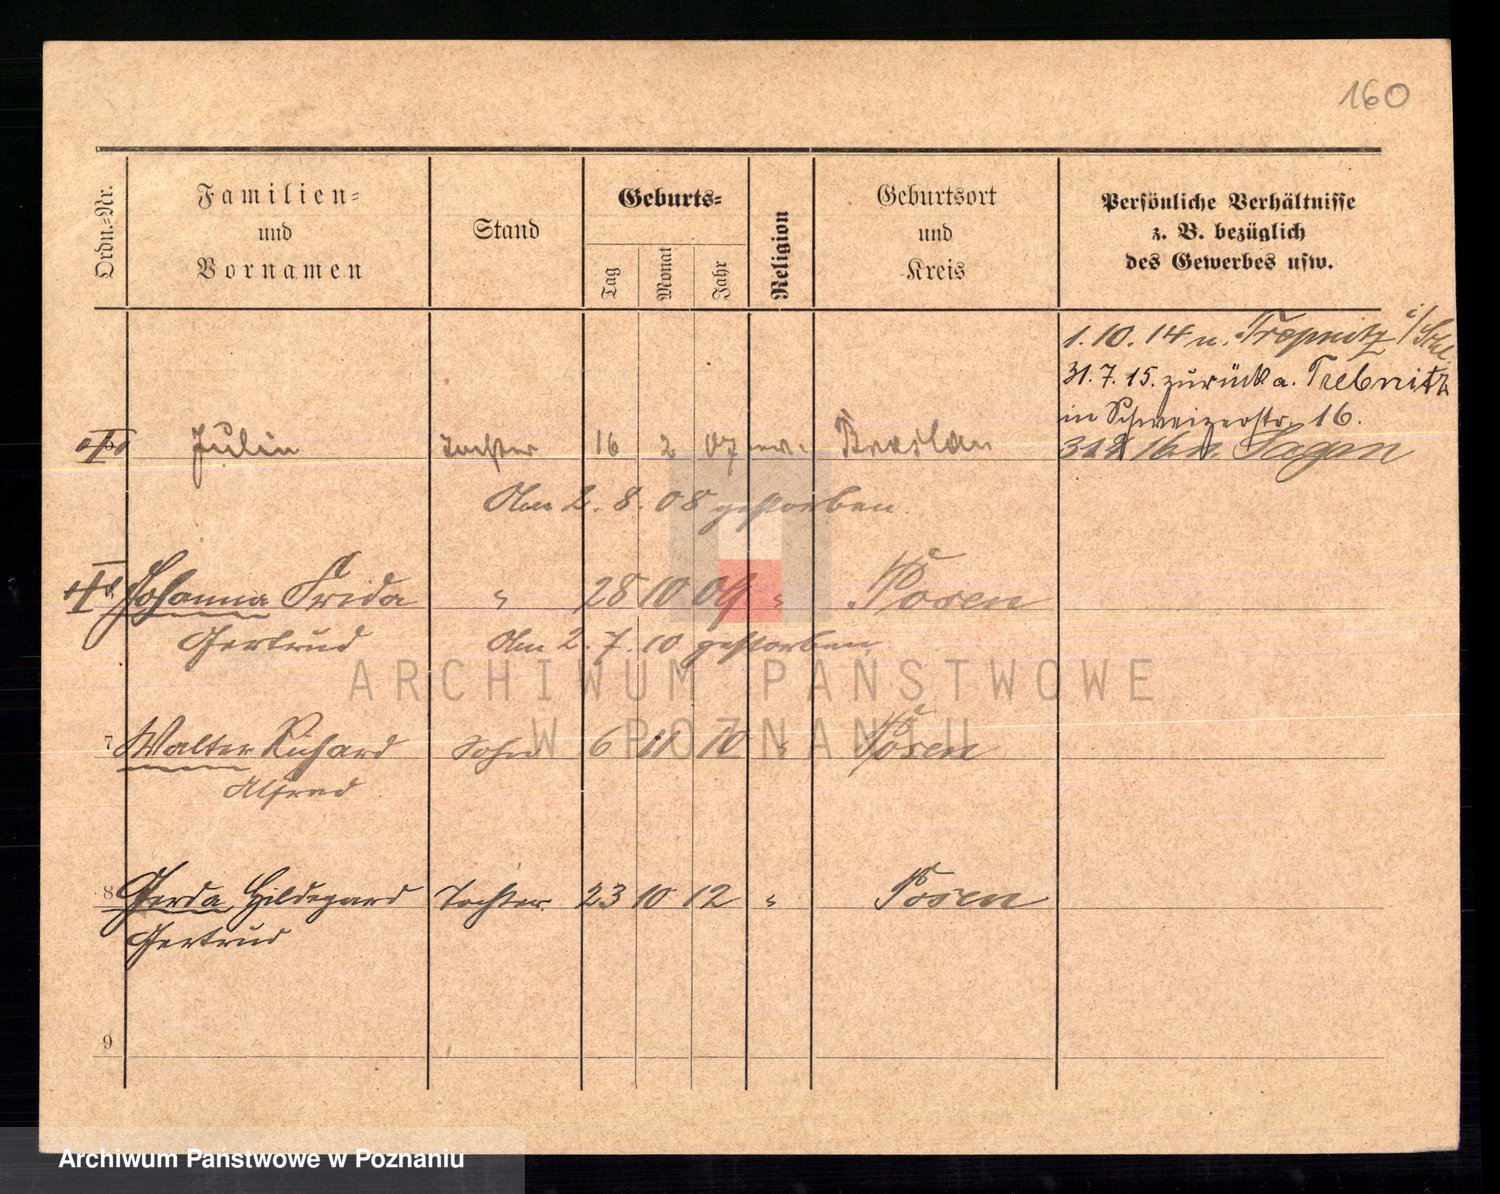 160
Ordn.-Nr.
Familien-
und
Vornamen
Stand
Geburts-
Tag
Monat
Jahr
Religion
Geburtsort
und
Kreis
Persönliche Verhältnisse
z. B. bezüglich
des Gewerbes usw.
1.10.14 n. i/Schl.
31.7.15. zurück a. Trebnitz
in Schweizerstr. 16.
16. n. Sagan
Tochter 16 2 07 ev. Breslau
Am 2.8.08 gestorben.
Johanna Frida " 28 10 09 " Posen
Gertrud Am 2.7.10 gestorben.
7 Walter Richard Sohn 6 11 10 " Posen
Alfred
8 Gerda Hildegard Tochter 23 10 12 " Posen
Gertrud
9
ARCHIWUM PAŃSTWOWE
W POZNANIU
Archiwum Państwowe w Poznaniu